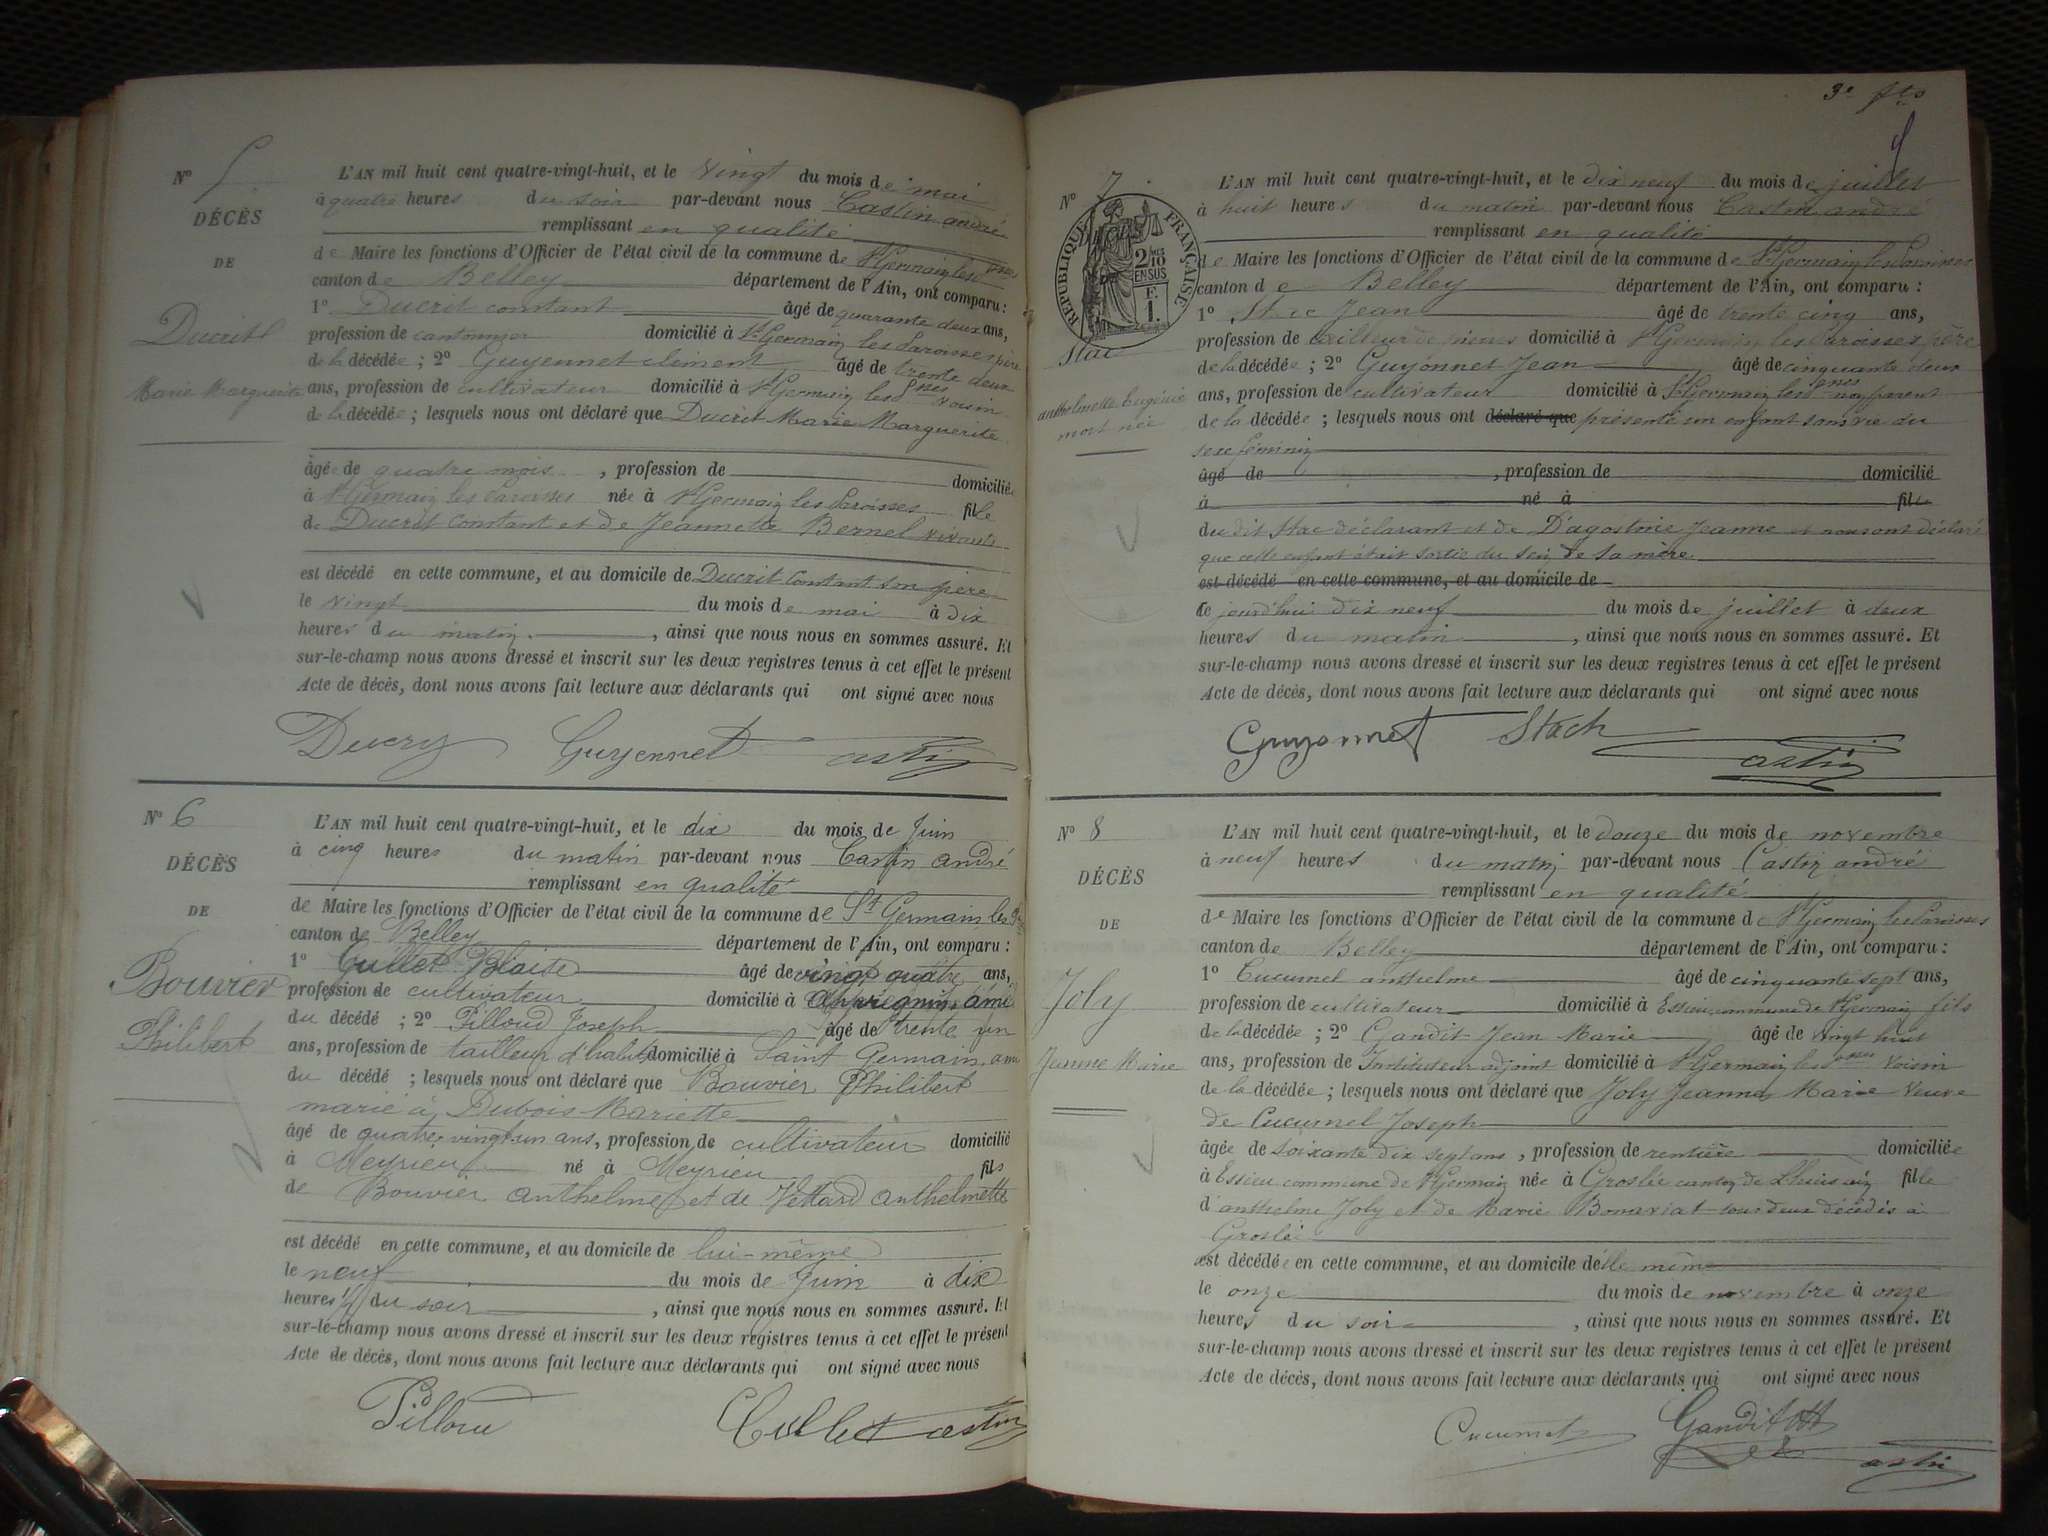 Nº 5
DÉCÈS
DE
Ducrit
Marie Marguerite
L'AN mil huit cent quatre-vingt-huit, et le vingt du mois de mai
à quatre heures du soir par-devant nous Castin andré
remplissant en qualité
de Maire les fonctions d'Officier de l'état civil de la commune de St Germain les Psses
canton de Belley département de l'Ain, ont comparu :
1º Ducrit constant âgé de quarante deux ans,
profession de cantonnier domicilié à St Germain les Paroisses père
de la décédée ; 2º Guyennet clément âgé de trente deux
ans, profession de cultivateur domicilié à St Germain les voisin
de la décédée ; lesquels nous ont déclaré que Ducrit Marie Marguerite
âgée de quatre mois , profession de domiciliée
à St Germain les Paroisses née à St Germain les Paroisses fille
de Ducrit Constant et de Jeannette Bernel vivants
est décédé en cette commune, et au domicile de Ducrit Constant son père
le vingt du mois de mai à dix
heures du matin , ainsi que nous nous en sommes assuré. Et
sur-le-champ nous avons dressé et inscrit sur les deux registres tenus à cet effet le présent
Acte de décès, dont nous avons fait lecture aux déclarants qui ont signé avec nous
Ducry Guyennet Castin
Nº 6
DÉCÈS
DE
Bouvier
Philibert
L'AN mil huit cent quatre-vingt-huit, et le dix du mois de Juin
à cinq heures du matin par-devant nous Castin andré
remplissant en qualité
de Maire les fonctions d'Officier de l'état civil de la commune de St Germain les
canton de Belley département de l'Ain, ont comparu :
1º Cullet Blaise âgé de vingt quatre ans,
profession de cultivateur domicilié à ami
du décédé ; 2º Pilloud Joseph âgé de trente un
ans, profession de tailleur d'habits domicilié à Saint Germain, ami
du décédé ; lesquels nous ont déclaré que Bouvier Philibert
marié à Dubois Mariette
âgé de quatre-vingt-un ans, profession de cultivateur domicilié
à Meyrieu né à Meyrieu fils
de Bouvier anthelme et de Vettard anthelmette
est décédé en cette commune, et au domicile de lui-même
le neuf du mois de Juin à dix
heures 1/2 du soir , ainsi que nous nous en sommes assuré. Et
sur-le-champ nous avons dressé et inscrit sur les deux registres tenus à cet effet le présent
Acte de décès, dont nous avons fait lecture aux déclarants qui ont signé avec nous
Pillou Cullet Castin
3e fts
Nº 7
RÉPUBLIQUE FRANÇAISE
2/10
EN SUS
F.
1.
Stac
anthelmette Eugénie
mort née
L'AN mil huit cent quatre-vingt-huit, et le dix neuf du mois de juillet
à huit heures du matin par-devant nous Castin andré
remplissant en qualité
de Maire les fonctions d'Officier de l'état civil de la commune de St Germain les Paroisses
canton de Belley département de l'Ain, ont comparu :
1º Stac Jean âgé de trente cinq ans,
profession de tailleur de pierres domicilié à St Germain les Paroisses père
de la décédée ; 2º Guyonnet Jean âgé de cinquante deux
ans, profession de cultivateur domicilié à St Germain les non parent
de la décédée ; lesquels nous ont déclaré que présenté un enfant sans vie du
sexe féminin
âgé de , profession de domicilié
à né à fille
du dit Stac déclarant et de D'agostine Jeanne et nous ont déclaré
que cette enfant était sortie du sein de sa mère
est décédé en cette commune, et au domicile de
ce jourd'hui dix neuf du mois de juillet à deux
heures du matin , ainsi que nous nous en sommes assuré. Et
sur-le-champ nous avons dressé et inscrit sur les deux registres tenus à cet effet le présent
Acte de décès, dont nous avons fait lecture aux déclarants qui ont signé avec nous
Guyonnet Stach Castin
Nº 8
DÉCÈS
DE
Joly
Jeanne Marie
L'AN mil huit cent quatre-vingt-huit, et le douze du mois de novembre
à neuf heures du matin par-devant nous Castin andré
remplissant en qualité
de Maire les fonctions d'Officier de l'état civil de la commune de St Germain les Paroisses
canton de Belley département de l'Ain, ont comparu :
1º Cucumel anthelme âgé de cinquante sept ans,
profession de cultivateur domicilié à Essieu commune de St Germain fils
de la décédée ; 2º Gandit Jean Marie âgé de vingt huit
ans, profession de Instituteur adjoint domicilié à St Germain les voisin
de la décédée ; lesquels nous ont déclaré que Joly Jeanne Marie veuve
de Cucumel Joseph
âgée de soixante dix sept ans , profession de rentière domiciliée
à Essieu commune de St Germain née à Groslée canton de Lhuis ain fille
d'anthelme Joly et de Marie Bonaviat tous deux décédés à
Groslée
est décédée en cette commune, et au domicile d'elle même
le onze du mois de novembre à onze
heures du soir , ainsi que nous nous en sommes assuré. Et
sur-le-champ nous avons dressé et inscrit sur les deux registres tenus à cet effet le présent
Acte de décès, dont nous avons fait lecture aux déclarants qui ont signé avec nous
Cucumel Gandit Castin